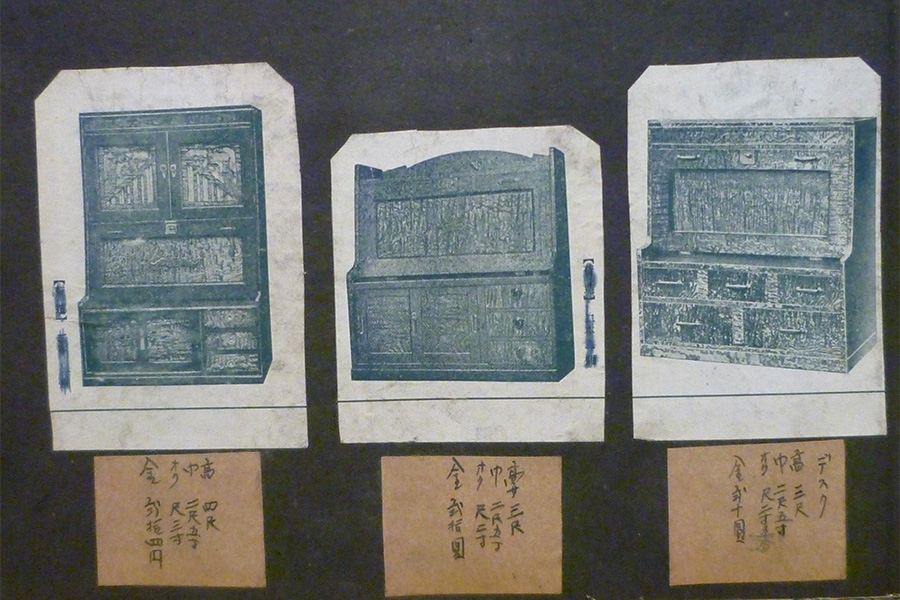 高 四尺
巾 二尺五寸
オク 尺三寸
金 貳拾四円
高 三尺
巾 二尺五寸
オク 尺二寸
金 貳拾圓
デスク
高 三尺
巾 二尺五寸
オク 尺二寸
金 貳十圓